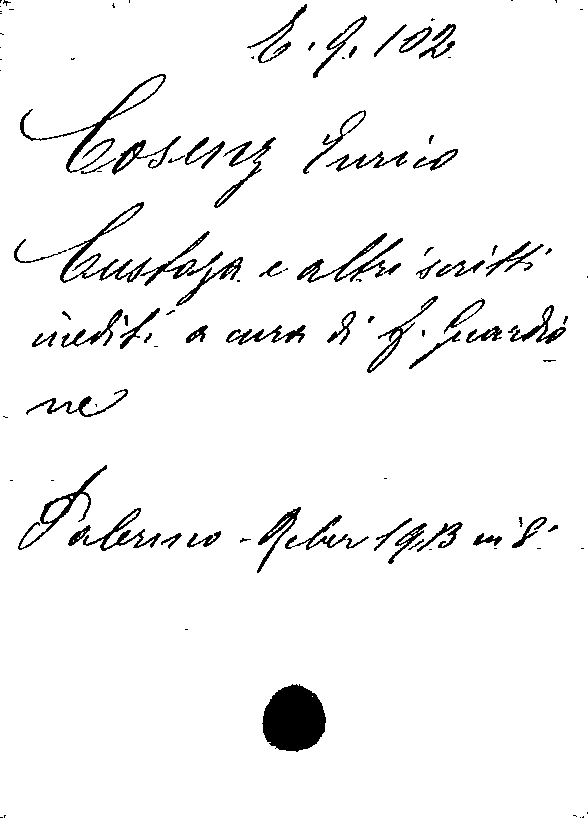 E. 9. 102
Cosenz Enrico
Custoza e altri scritti
inediti a cura di f. Guardio
ne
Palermo - Reber 1913 in 8°